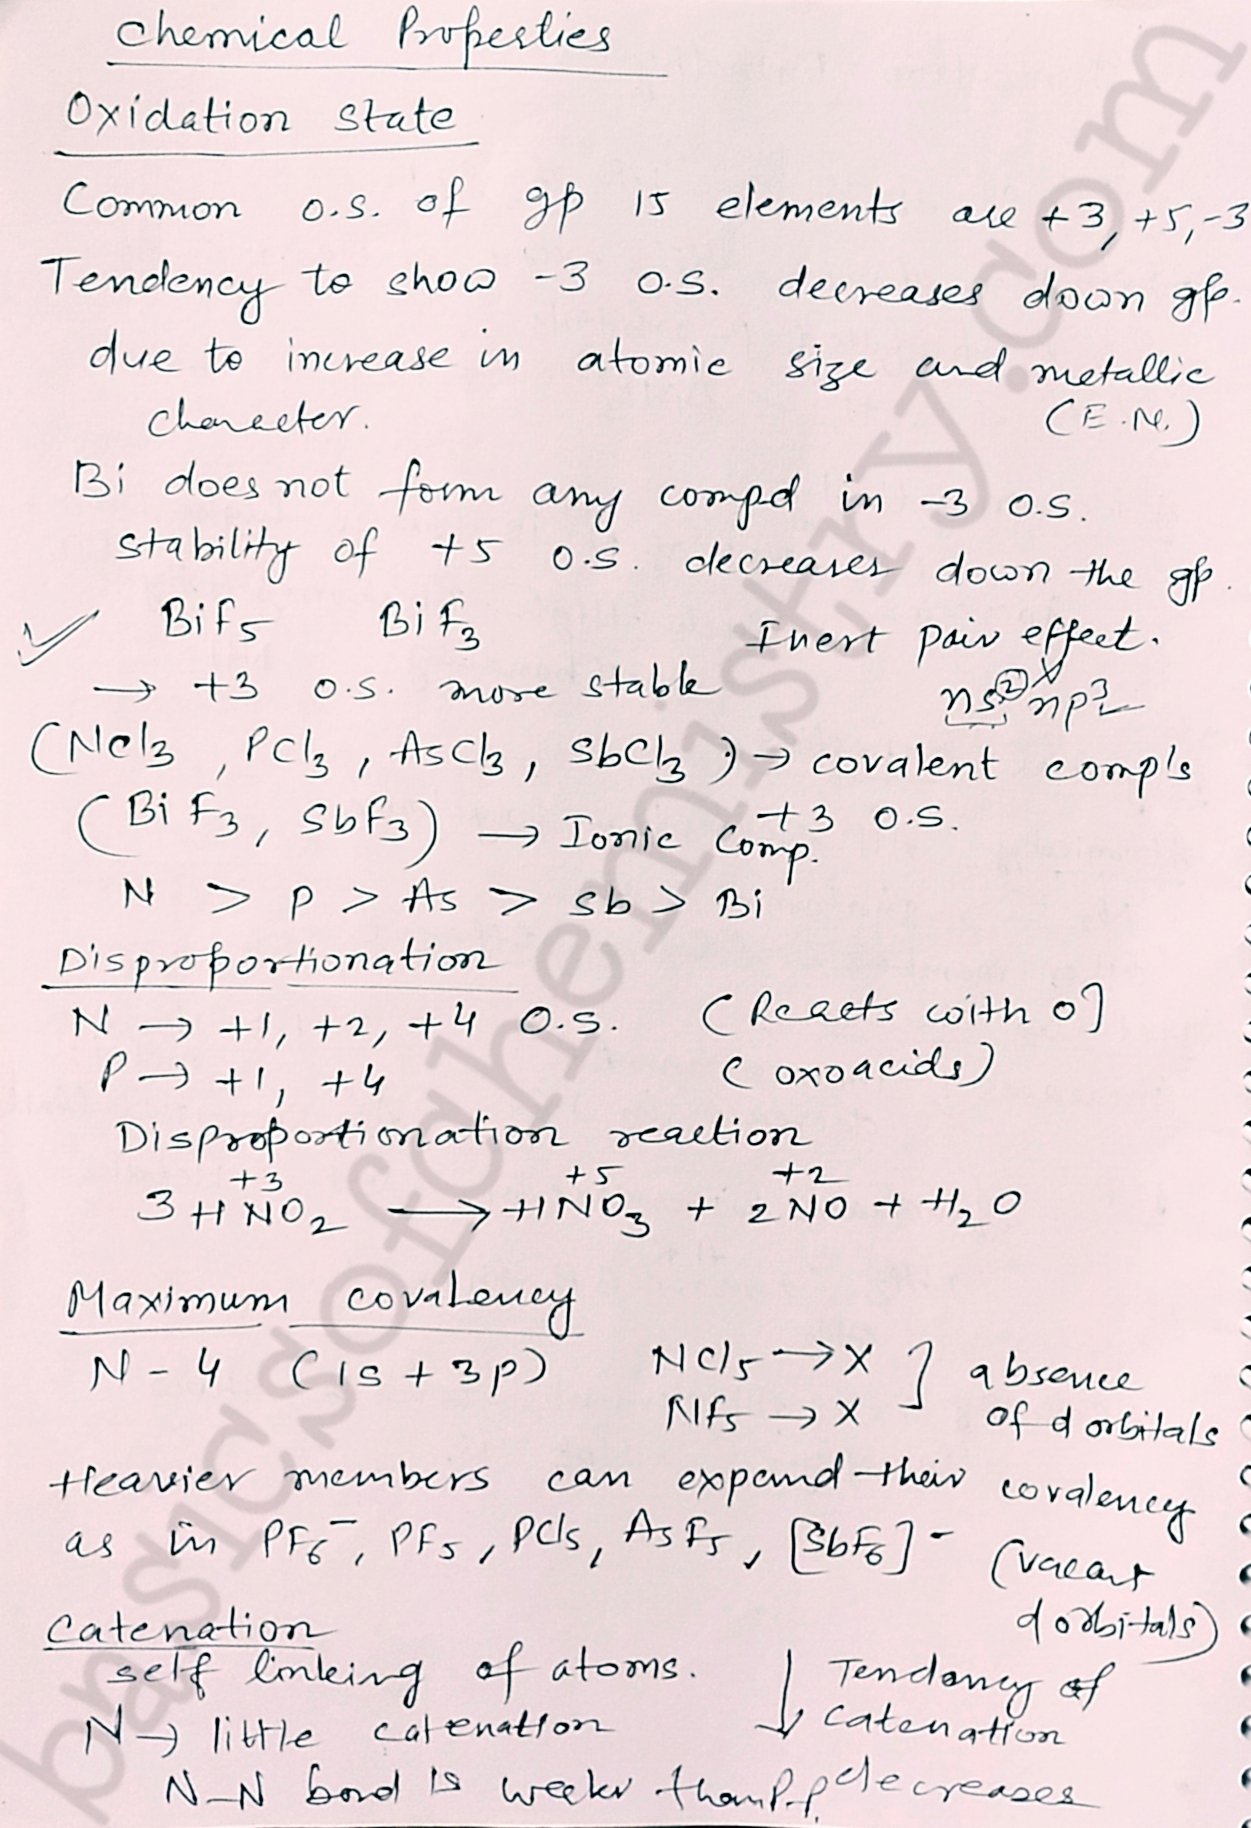 Chemical Properties
Oxidation State
Common o.s. of gp 15 elements are +3, +5, -3
Tendency to show -3 o.s. decreases down gp.
due to increase in atomic size and metallic
character. (E.N.)
Bi does not form any compd in -3 o.s.
stability of +5 o.s. decreases down the gp.
✓ BiF5 BiF3 Inert pair effect.
→ +3 o.s. more stable ns² np³
(NCl3, PCl3, AsCl3, SbCl3) → covalent comp's
(BiF3, SbF3) → Ionic Comp. +3 o.s.
N > P > As > Sb > Bi
Disproportionation
N → +1, +2, +4 O.S. (Reacts with O]
P → +1, +4 (oxoacids)
Disproportionation reaction
+3 +5 +2
3HNO2 → HNO3 + 2NO + H2O
Maximum covalency
N - 4 (1s + 3p) NCl5 → X ] absence
NF5 → X of d orbitals
Heavier members can expand their covalency
as in PF6⁻, PF5, PCl5, AsF5, [SbF6]⁻ (vacant
d orbitals)
Catenation
self linking of atoms. ↓ Tendency of
N → little catenation catenation
N-N bond is weeker than P-P. decreases
basicsofchemistry.com